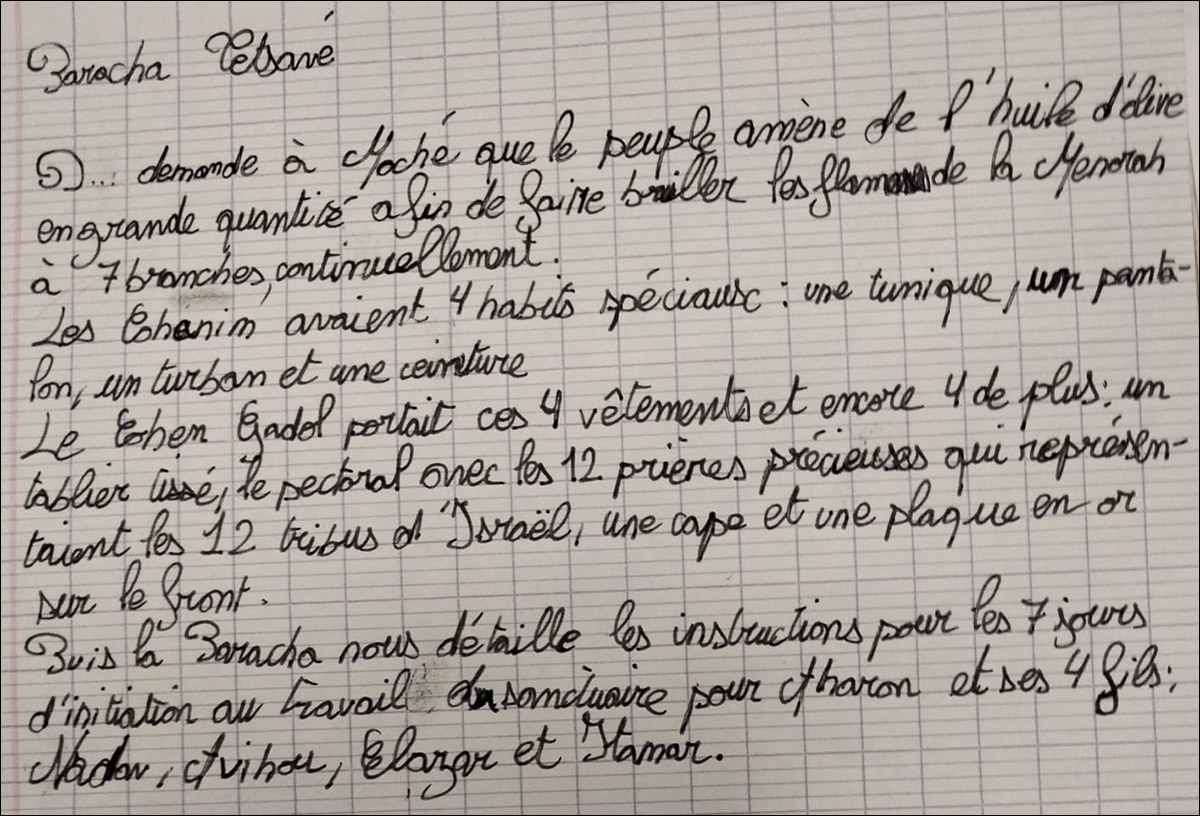 Paracha Tetsavé
D... demande à Moché que le peuple amène de l'huile d'olive
en grande quantité afin de faire briller les flammes de la Menorah
à 7 branches, continuellement.
Les Cohanim avaient 4 habits spéciaux : une tunique, un panta-
lon, un turban et une ceinture
Le Cohen Gadol portait ces 4 vêtements et encore 4 de plus : un
tablier tissé, le pectoral avec les 12 prières précieuses qui représen-
taient les 12 tribus d'Israël, une cape et une plaque en or
sur le front.
Puis la Paracha nous détaille les instructions pour les 7 jours
d'initiation au travail du sanctuaire pour Aharon et ses 4 fils :
Nadav, Avihou, Elazar et Itamar.